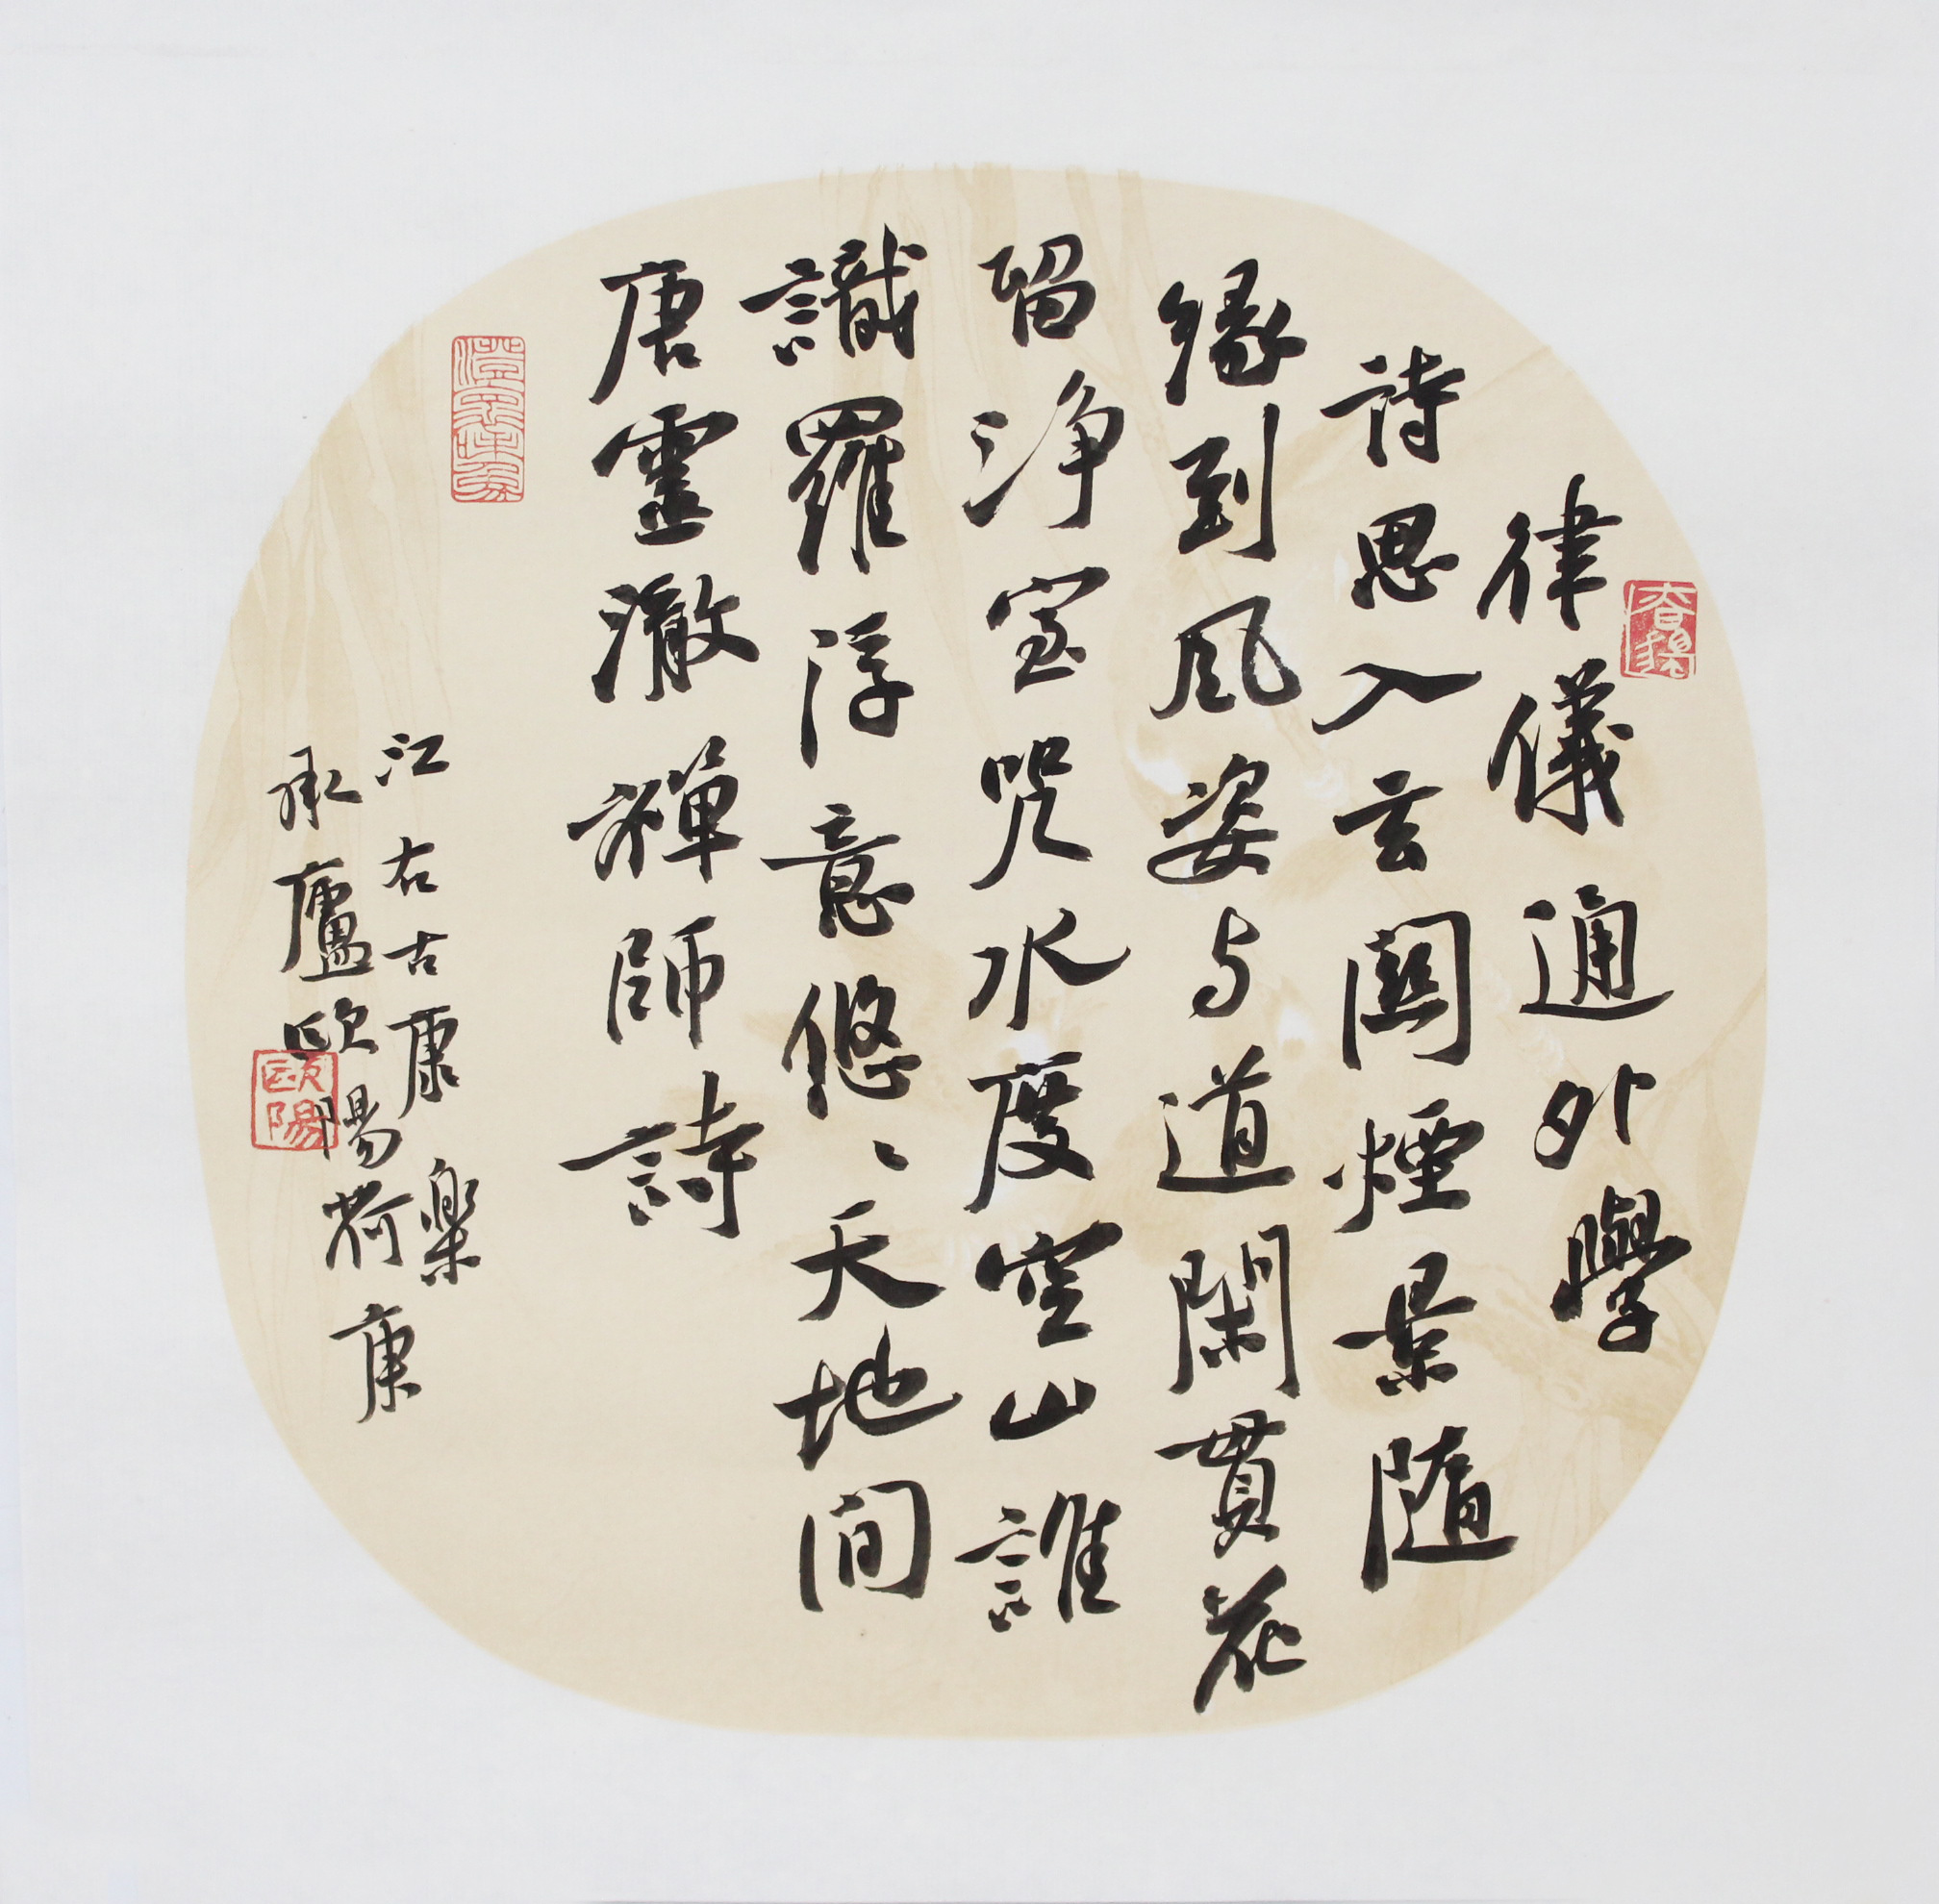 律儀通外學
詩思入玄關煙景隨
緣到風姿与道閑貫花
留淨室咒水度空山誰
識羅浮意悠〻天地间
唐靈澈禪師詩
江右古康樂
承廬歐陽荷庚
歐陽